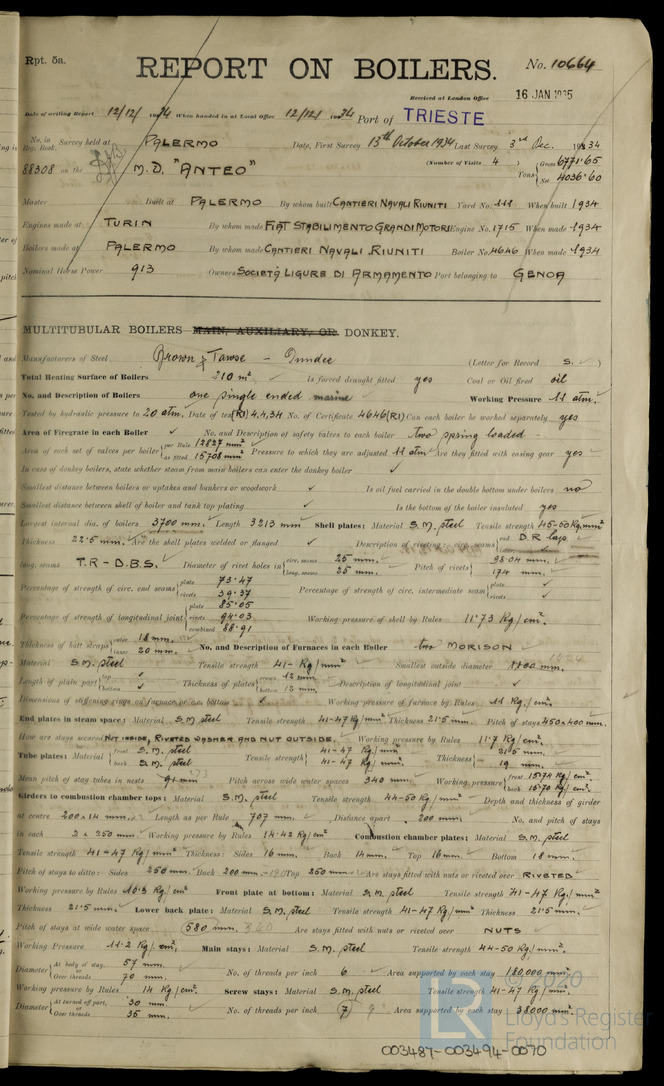 Rpt. 5a.
REPORT ON BOILERS.
No. 10664
Received at London Office 16 JAN 1935
Date of writing Report 12/12/ 1934 When handed in at Local Office 12/12/ 1934 Port of TRIESTE
No. in Reg. Book. Survey held at PALERMO Date, First Survey 13th October 1934 Last Survey 3rd Dec. 1934
88308 on the M.D. "ANTEO" (Number of Visits 4) Tons Gross 6771.65 Net 4036.60
Master Built at PALERMO By whom built CANTIERI NAVALI RIUNITI Yard No. 111 When built 1934
Engines made at TURIN By whom made FIAT STABILIMENTO GRANDI MOTORI Engine No. 1715 When made 1934
Boilers made at PALERMO By whom made CANTIERI NAVALI RIUNITI Boiler No. 4646 When made 1934
Nominal Horse Power 913 Owners SOCIETÀ LIGURE DI ARMAMENTO Port belonging to GENOA
MULTITUBULAR BOILERS MAIN, AUXILIARY, OR DONKEY.
Manufacturers of Steel Brown & Tawse - Dundee (Letter for Record S.)
Total Heating Surface of Boilers 210 m² Is forced draught fitted yes Coal or Oil fired oil
No. and Description of Boilers one single ended marine Working Pressure 11 atm.
Tested by hydraulic pressure to 20 atm. Date of test (R1) 4,4,34 No. of Certificate 4646 (R1) Can each boiler be worked separately yes
Area of Firegrate in each Boiler ✓ No. and Description of safety valves to each boiler two spring loaded
Area of each set of valves per boiler per Rule 12827 mm² as fitted 15708 mm² Pressure to which they are adjusted 11 atm Are they fitted with easing gear yes
In case of donkey boilers, state whether steam from main boilers can enter the donkey boiler ✓
Smallest distance between boilers or uptakes and bunkers or woodwork ✓ Is oil fuel carried in the double bottom under boilers no
Smallest distance between shell of boiler and tank top plating ✓ Is the bottom of the boiler insulated yes
Largest internal dia. of boilers 3700 mm. Length 3213 mm Shell plates: Material S.M. steel Tensile strength 45-50 Kg/mm²
Thickness 22.5 mm. Are the shell plates welded or flanged ✓ Description of riveting: circ. seams end D.R. laps
long. seams T.R - D.B.S. Diameter of rivet holes in circ. seams 25 mm. long. seams 25 mm. Pitch of rivets 98.04 mm. 174 mm.
Percentage of strength of circ. end seams plate 73.47 rivets 39.37 Percentage of strength of circ. intermediate seam plate ✓ rivets ✓
Percentage of strength of longitudinal joint plate 85.05 rivets 94.03 combined 88.91 Working pressure of shell by Rules 11.73 Kg/cm².
Thickness of butt straps outer 18 mm. inner 20 mm. No. and Description of Furnaces in each Boiler two MORISON
Material S.M. steel Tensile strength 41- Kg/mm² Smallest outside diameter
Length of plain part top ✓ bottom ✓ Thickness of plates crown 12 mm bottom 12 mm. Description of longitudinal joint ✓
Dimensions of stiffening rings on furnace or c.c. bottom ✓ Working pressure of furnace by Rules 11 Kg/cm².
End plates in steam space: Material S.M. steel Tensile strength 41-47 Kg/mm² Thickness 21.5 mm. Pitch of stays 450x400 mm.
How are stays secured NUT INSIDE, RIVETED WASHER AND NUT OUTSIDE. Working pressure by Rules 11.7 Kg/cm².
Tube plates: Material front S.M. steel back S.M. steel Tensile strength 41-47 Kg/mm² 41-47 Kg/mm² Thickness 21.5 mm. 19 mm.
Mean pitch of stay tubes in nests Pitch across wide water spaces 340 mm. Working pressure front 15.74 Kg/cm² back 15.70 Kg/cm².
Girders to combustion chamber tops: Material S.M. steel Tensile strength 44-50 Kg/mm² Depth and thickness of girder
at centre 200x14 mm. Length as per Rule 707 mm. Distance apart 200 mm. No. and pitch of stays
in each 2 x 250 mm. Working pressure by Rules 14.42 Kg/cm² Combustion chamber plates: Material S.M. steel
Tensile strength 41-47 Kg/mm² Thickness: Sides 16 mm. Back 14 mm. Top 16 mm. Bottom 18 mm.
Pitch of stays to ditto: Sides 250 mm. Back 200 mm. Top 250 mm. Are stays fitted with nuts or riveted over RIVETED
Working pressure by Rules 10.3 Kg/cm² Front plate at bottom: Material S.M. steel Tensile strength 41-47 Kg/mm²
Thickness 21.5 mm. Lower back plate: Material S.M. steel Tensile strength 41-47 Kg/mm² Thickness 21.5 mm.
Pitch of stays at wide water space 580 mm. 340 Are stays fitted with nuts or riveted over NUTS
Working Pressure 11.2 Kg/cm². Main stays: Material S.M. steel Tensile strength 44-50 Kg/mm²
Diameter At body of stay, 57 mm. or Over threads 70 mm. No. of threads per inch 6 Area supported by each stay 180,000 mm².
Working pressure by Rules 14 Kg/cm². Screw stays: Material S.M. steel Tensile strength 41-47 Kg/mm²
Diameter At turned off part, 30 mm. or Over threads 35 mm. No. of threads per inch 7 9 Area supported by each stay 38000 mm².
© 2020
Lloyd's Register
Foundation
003487-003494-0070